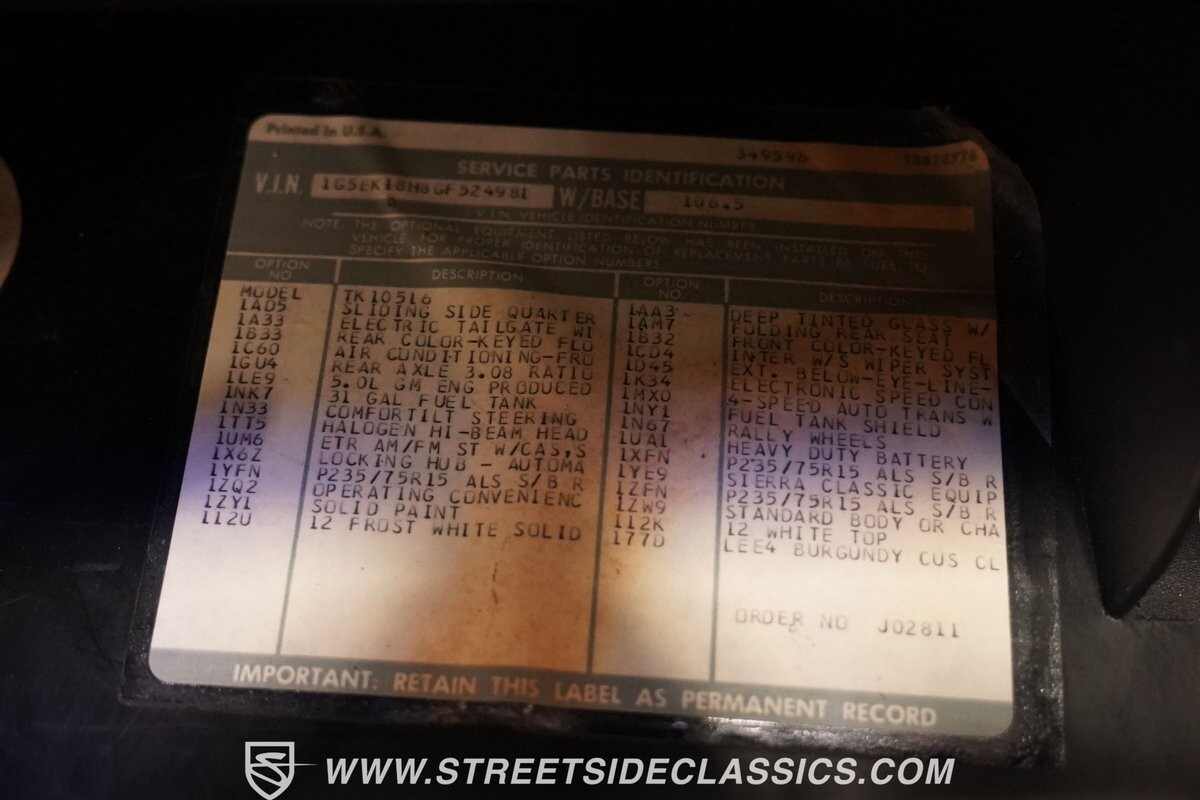 Printed in U.S.A.
349596
SERVICE PARTS IDENTIFICATION
V.I.N. 1G5EK18H8GF524981 W/BASE 106.5
V.I.N. VEHICLE IDENTIFICATION NUMBER
NOTE THE OPTIONAL EQUIPMENT LISTED BELOW HAS BEEN INSTALLED ON THIS
VEHICLE. FOR PROPER IDENTIFICATION OF REPLACEMENT PARTS BE SURE TO
SPECIFY THE APPLICABLE OPTION NUMBERS.
OPTION NO. DESCRIPTION OPTION NO. DESCRIPTION
MODEL TK10516
1AD5 SLIDING SIDE QUARTER
1A33 ELECTRIC TAILGATE WI
1B33 REAR COLOR-KEYED FLO
1C60 AIR CONDITIONING-FRO
1GU4 REAR AXLE 3.08 RATIO
1LE9 5.0L GM ENG PRODUCED
1NK7 31 GAL FUEL TANK
1N33 COMFORTILT STEERING
1TT5 HALOGEN HI-BEAM HEAD
1UM6 ETR AM/FM ST W/CAS,S
1X6Z LOCKING HUB - AUTOMA
1YFN P235/75R15 ALS S/B R
1ZQ2 OPERATING CONVENIENC
1ZY1 SOLID PAINT
112U 12 FROST WHITE SOLID
1AA3 DEEP TINTED GLASS W/
1AM7 FOLDING REAR SEAT
1B32 FRONT COLOR-KEYED FL
1CD4 INTER W/S WIPER SYST
1D45 EXT. BELOW-EYE-LINE-
1K34 ELECTRONIC SPEED CON
1MX0 4-SPEED AUTO TRANS W
1NY1 FUEL TANK SHIELD
1N67 RALLY WHEELS
1UA1 HEAVY DUTY BATTERY
1XFN P235/75R15 ALS S/B R
1YE9 SIERRA CLASSIC EQUIP
1ZFN P235/75R15 ALS S/B R
1ZW9 STANDARD BODY OR CHA
112K 12 WHITE TOP
177D LEE4 BURGUNDY CUS CL
ORDER NO J02811
IMPORTANT: RETAIN THIS LABEL AS PERMANENT RECORD
WWW.STREETSIDECLASSICS.COM